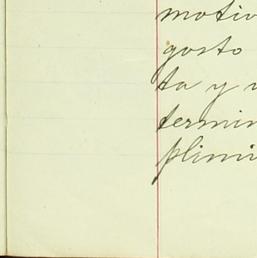 motiv
gosto
ta y
termin
plimi